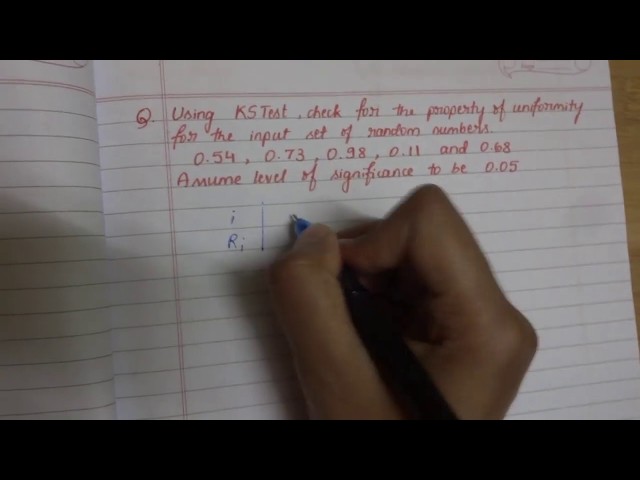 Q. Using KS Test, check for the property of uniformity
for the input set of random numbers.
0.54, 0.73, 0.98, 0.11 and 0.68
Assume level of significance to be 0.05
i
Ri